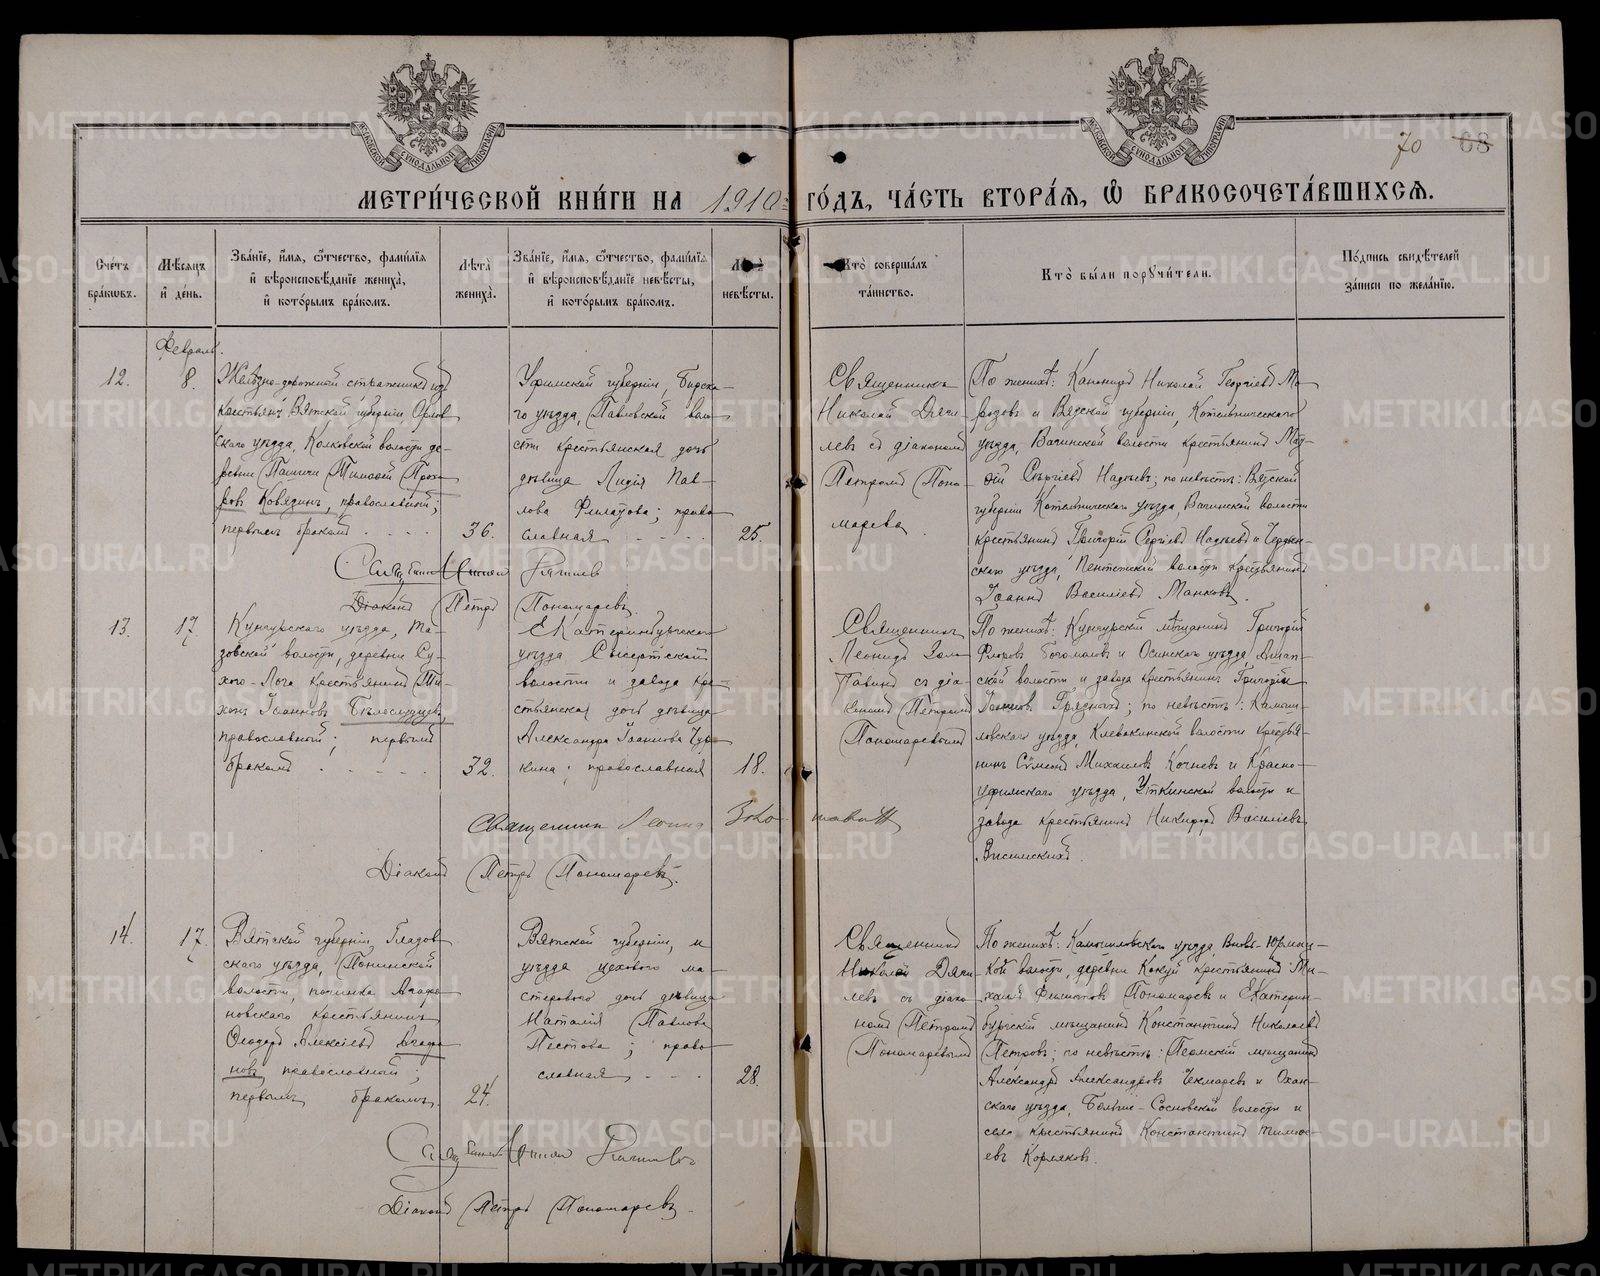 МОСКОВСКОЙ СѴНОДАЛЬНОЙ ТИПОГРАФІИ
МОСКОВСКОЙ СѴНОДАЛЬНОЙ ТИПОГРАФІИ
70 68
МЕТРИ́ЧЕСКОЙ КНИ́ГИ НА 1910 ГО́ДЪ, ЧА́СТЬ ВТОРА́Я, Ѽ БРАКОСОЧЕТА́ВШИХСЯ.
Сче́тъ бра́ковъ.
Мѣ́сяцъ и҆ де́нь.
Зва́нїе, и҆́мя, ѻ҆́тчество, фами́лїя
и҆ вѣроисповѣ́данїе жениха̀,
и҆ кото́рымъ бра́комъ.
Лѣ́та̀ жениха̀.
Зва́нїе, и҆́мя, ѻ҆́тчество, фами́лїя
и҆ вѣроисповѣ́данїе невѣ́сты,
и҆ кото́рымъ бра́комъ.
невѣ́сты.
Кто̀ соверша́лъ
та́инство.
Кто̀ бы́ли порꙋчи́тели.
По́дпись свидѣ́телей
за́писи по жела́нїю.
Февраль.
12.
8.
Желѣзно-дорожной стражникъ изъ
крестьянъ Вятской губерніи, Орлов
скаго уѣзда, Колковской волости де-
ревни Пашичи Тимофей Проко
ровъ Ковязинъ, православный;
первымъ бракомъ
36.
Уфимской губерніи, Бирска-
го уѣзда, Павловской воло
сти крестьянская дочь
дѣвица Лидія Пав-
лова Филатова; право
славная
25.
Священникъ
Николай Дяги
левъ съ діакономъ
Петромъ Поно
марева
По женихѣ: Канониръ Николай Георгіевъ Мо
розовъ и Вятской губерніи, Котельническаго
уѣзда, Вагинской волости крестьянинъ
Сергіевъ Надѣевъ; по невѣстѣ: Вятской
губерніи Котельническаго уѣзда Вагинской волости
крестьянинъ Григорій Сергіевъ Надѣевъ и Чердын-
скаго уѣзда, волости крестьянинъ
Іоаннъ Василіевъ Манковъ.
Священникъ Николай Дягилевъ
Діаконъ Петръ Пономаревъ.
13.
17.
Кунгурскаго уѣзда, Ма-
зовской волости, деревни Су-
хого-Лога крестьянинъ Ти-
хонъ Іоанновъ Бѣлослудцевъ,
православный; первымъ
бракомъ
32.
Екатеринбургскаго
уѣзда Сысертской
волости и завода кре
стьянская дочь дѣвица
Александра Іоаннова Чур
кина; православная
18.
Священникъ
Леонидъ Золо
тавинъ съ діа-
кономъ Петромъ
Пономаревымъ
По женихѣ: Кунгурскій мѣщанинъ Григорій
Фроловъ Богомоловъ и Осинскаго уѣзда, Ашап-
ской волости и завода крестьянинъ Григорій
Іоанновъ Грязныхъ; по невѣстѣ: Камыш-
ловскаго уѣзда, Клевакинской волости крестья-
нинъ Сѵмеонъ Михаиловъ Кочневъ и Красно-
уфимскаго уѣзда, Уткинской волости и
завода крестьянинъ Никифоръ Василіевъ
Висимскихъ.
Священникъ Леонидъ Золотавинъ
Діаконъ Петръ Пономаревъ.
14.
17.
Вятской губерніи, Глазов
скаго уѣзда, Понинской
волости, починка Агафо
новскаго крестьянинъ
Ѳеодоръ Алексіевъ Агафо
новъ, православный;
первымъ бракомъ.
24.
Вятской губерніи, и
уѣзда цехового ма-
стерового дочь дѣвица
Наталія Павлова
Пестова; право
славная
28.
Священникъ
Николай Дяги-
левъ съ діако
номъ Петромъ
Пономаревымъ
По женихѣ: Камышловскаго уѣзда, Вновь-Юрмыц-
кой волости, деревни Кокуй крестьянинъ Ми-
хаилъ Филипповъ Пономаревъ и Екатерин-
бургскій мѣщанинъ Константинъ Николаевъ
Петровъ; по невѣстѣ: Пермскій мѣщанинъ
Александръ Александровъ Чекмаревъ и Охан-
скаго уѣзда, Больше-Сосновской волости и
села крестьянинъ Константинъ Тимофе-
евъ Корляковъ.
Священникъ Николай Дягилевъ
Діаконъ Петръ Пономаревъ.
METRIKI.GASO-URAL.RU